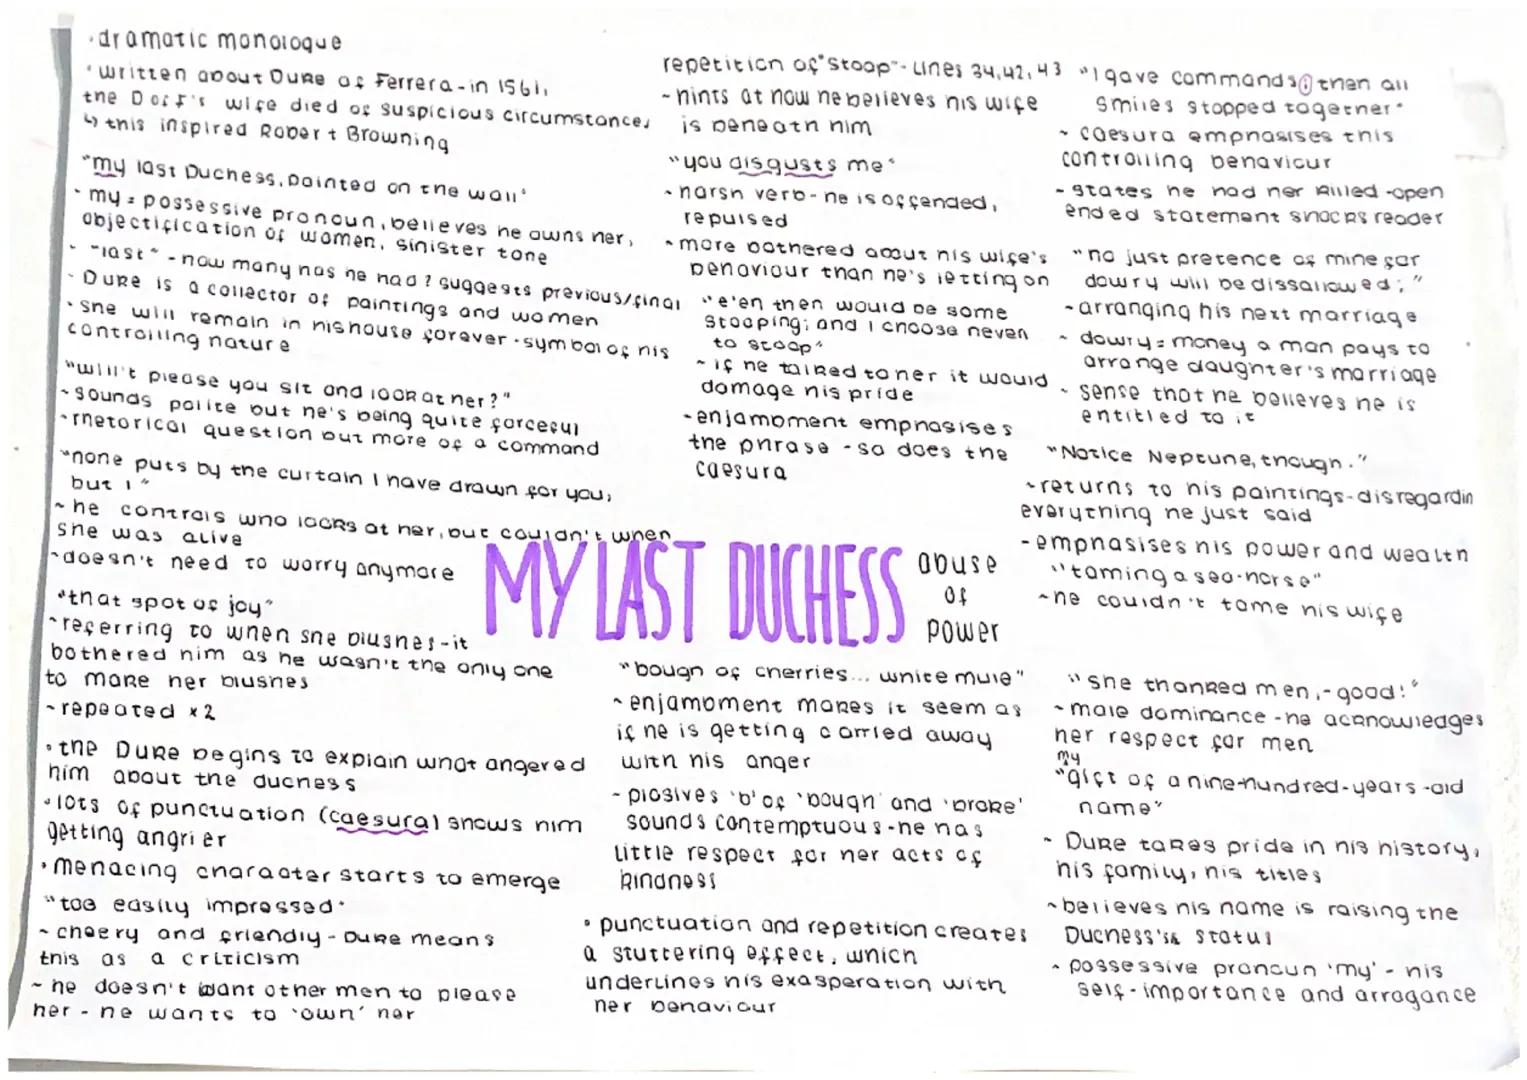 ·dramatic monologue
·written about Duke of Ferrera - in 1561,
the DofF's wife died of suspicious circumstances
↳ this inspired Robert Browning
"my last Duchess, painted on the wall"
- my = possessive pronoun, believes he owns her,
objectification of women, sinister tone
- "last" - how many has he had? suggests previous/final
- Duke is a collector of paintings and women
· she will remain in his house forever - symbol of his
controlling nature
"will't please you sit and look at her?"
~ sounds polite but he's being quite forceful
- rhetorical question but more of a command
"none puts by the curtain I have drawn for you,
but I"
~ he controls who looks at her, but couldn't when
she was alive
~ doesn't need to worry anymore
"that spot of joy"
~ referring to when she blushes - it
bothered him as he wasn't the only one
to make her blushes
~ repeated x2
· the Duke begins to explain what angered
him about the duchess
· lots of punctuation (caesura) shows him
getting angrier
· menacing character starts to emerge
"too easily impressed"
~ cheery and friendly - Duke means
this as a criticism
~ he doesn't want other men to please
her - he wants to 'own' her
repetition of "stoop" - lines 34,42,43
~ hints at how he believes his wife
is beneath him
"you disgusts me"
~ harsh verb - he is offended,
repulsed
~ more bothered about his wife's
behaviour than he's letting on
"e'en then would be some
stooping; and I choose never
to stoop"
~ if he talked to her it would
damage his pride
- enjambment emphasises
the phrase - so does the
caesura
MY LAST DUCHESS
abuse
of
power
"bough of cherries... white mule"
~ enjambment makes it seem as
if he is getting carried away
with his anger
~ plosives 'b' of 'bough' and 'broke'
sounds contemptuous - he has
little respect for her acts of
kindness
· punctuation and repetition creates
a stuttering effect, which
underlines his exasperation with
her behaviour
"I gave commands; then all
smiles stopped together"
~ caesura emphasises this
controlling behaviour
- states he had her killed - open
ended statement shocks reader
"no just pretence of mine for
dowry will be dissallowed;"
- arranging his next marriage
~ dowry = money a man pays to
arrange daughter's marriage
~ sense that he believes he is
entitled to it
"Notice Neptune, though."
~ returns to his paintings - disregardin
everything he just said
- emphasises his power and wealth
"taming a sea-horse"
~ he couldn't tame his wife
"she thanked men, - good!"
~ male dominance - he acknowledges
her respect for men
my
"gift of a nine-hundred-years-old
name"
~ Duke takes pride in his history,
his family, his titles
~ believes his name is raising the
Duchess's status
~ possessive pronoun 'my' - his
self-importance and arrogance